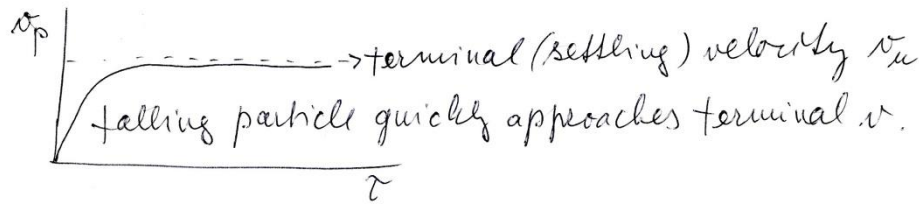 v_p
→ terminal (settling) velocity v_u
falling particle quickly approaches terminal v.
τ